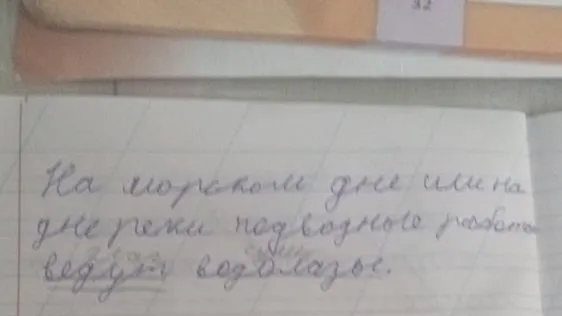 32
На морском дне или на
дне реки подводные работы
ведут водолазы.